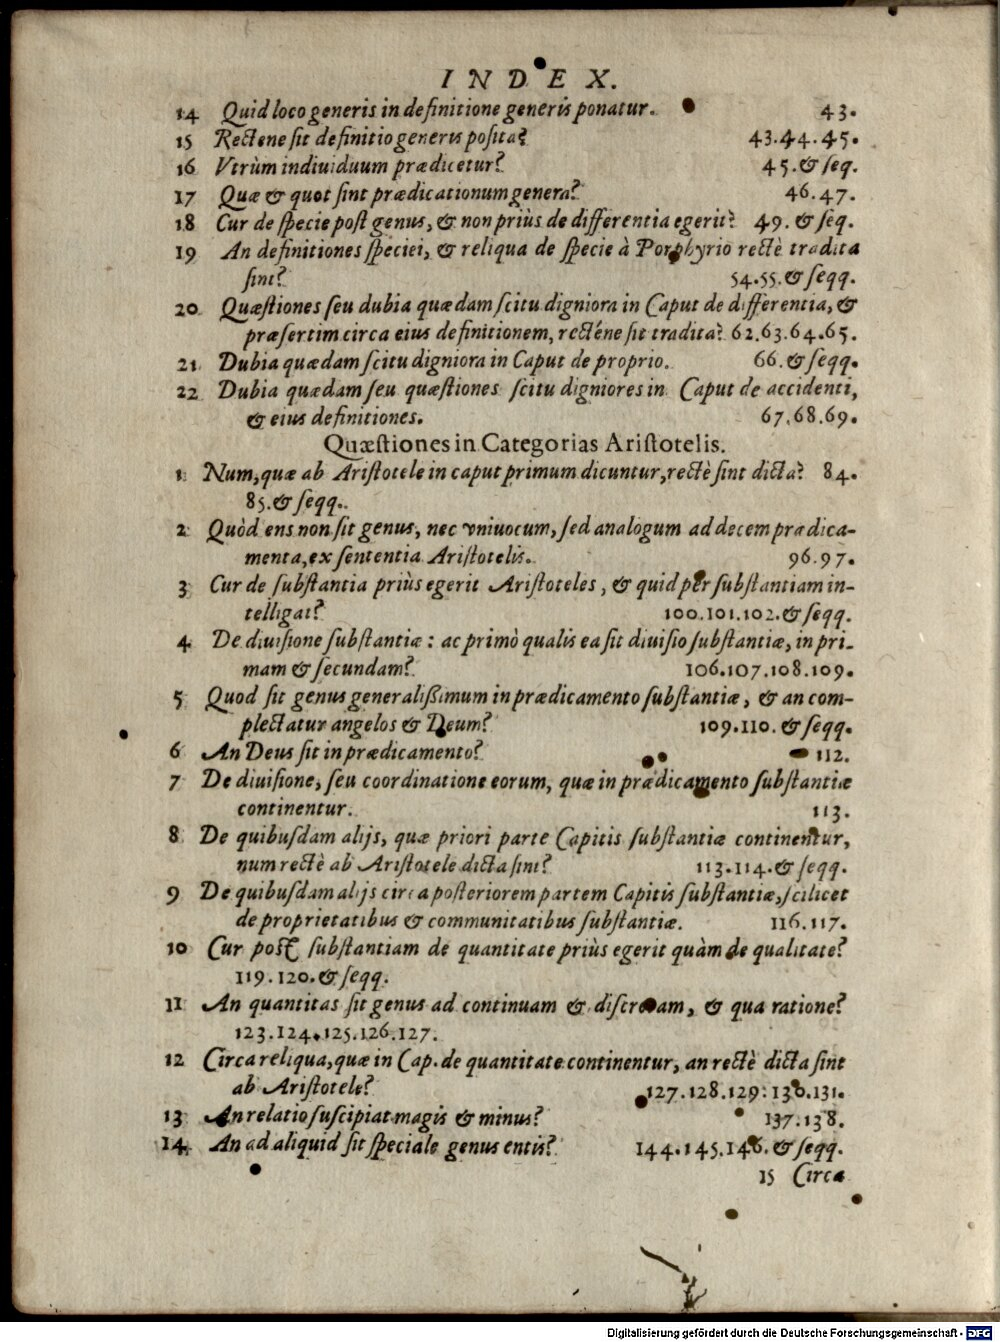 INDEX.
14 Quid loco generis in definitione generis ponatur. 43.
15 Rectene sit definitio generis posita? 43.44.45.
16 Vtrùm indiuiduum prædicetur? 45.& seq.
17 Quæ & quot sint prædicationum genera? 46.47.
18 Cur de specie post genus, & non priùs de differentia egerit? 49. & seq.
19 An definitiones speciei, & reliqua de specie à Porphyrio rectè tradita
sint? 54.55.& seqq.
20 Quæstiones seu dubia quædam scitu digniora in Caput de differentia, &
præsertim circa eius definitionem, recténe sit tradita? 62.63.64.65.
21 Dubia quædam scitu digniora in Caput de proprio. 66.& seqq.
22 Dubia quædam seu quæstiones scitu digniores in Caput de accidenti,
& eius definitiones. 67.68.69.
Quæstiones in Categorias Aristotelis.
1 Num, quæ ab Aristotele in caput primum dicuntur, rectè sint dicta? 84.
85.& seqq.
2 Quòd ens non sit genus, nec vniuocum, sed analogum ad decem prædica-
menta, ex sententia Aristotelis. 96.97.
3 Cur de substantia priùs egerit Aristoteles, & quid per substantiam in-
telligat? 100.101.102.& seqq.
4 De diuisione substantiæ: ac primò qualis ea sit diuisio substantiæ, in pri-
mam & secundam? 106.107.108.109.
5 Quod sit genus generalißimum in prædicamento substantiæ, & an com-
plectatur angelos & Deum? 109.110. & seqq.
6 An Deus sit in prædicamento? 112.
7 De diuisione, seu coordinatione eorum, quæ in prædicamento substantiæ
continentur. 113.
8 De quibusdam alijs, quæ priori parte Capitis substantiæ continentur,
num rectè ab Aristotele dicta sint? 113.114.& seqq.
9 De quibusdam alijs circa posteriorem partem Capitis substantiæ, scilicet
de proprietatibus & communitatibus substantiæ. 116.117.
10 Cur post substantiam de quantitate priùs egerit quàm de qualitate?
119.120.& seqq.
11 An quantitas sit genus ad continuam & discretam, & qua ratione?
123.124.125.126.127.
12 Circa reliqua, quæ in Cap. de quantitate continentur, an rectè dicta sint
ab Aristotele? 127.128.129.130.131.
13 An relatio suscipiat magis & minus? 137.138.
14 An ad aliquid sit speciale genus entis? 144.145.146. & seqq.
15 Circa
Digitalisierung gefördert durch die Deutsche Forschungsgemeinschaft - DFG